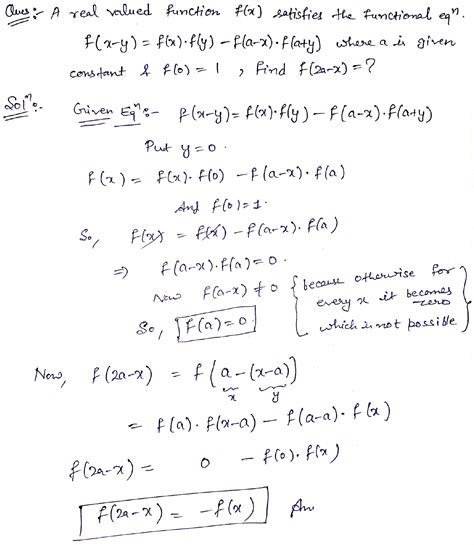 Ques :- A real valued function f(x) satisfies the functional eqⁿ.
f(x-y) = f(x)·f(y) - f(a-x)·f(a+y) where a is given
constant & f(0) = 1 , Find f(2a-x) = ?
Solⁿ:- Given Eqⁿ:- f(x-y) = f(x)·f(y) - f(a-x)·f(a+y)
Put y = 0 .
f(x) = f(x)·f(0) - f(a-x)·f(a)
And f(0) = 1.
So, f(x) = f(x) - f(a-x)·f(a)
⇒ f(a-x)·f(a) = 0 .
Now f(a-x) ≠ 0 { because otherwise for
every x it becomes
zero
So, f(a) = 0 which is not possible }
Now, f(2a-x) = f(a-(x-a))
x y
= f(a)·f(x-a) - f(a-a)·f(x)
f(2a-x) = 0 - f(0)·f(x)
f(2a-x) = -f(x) Ans